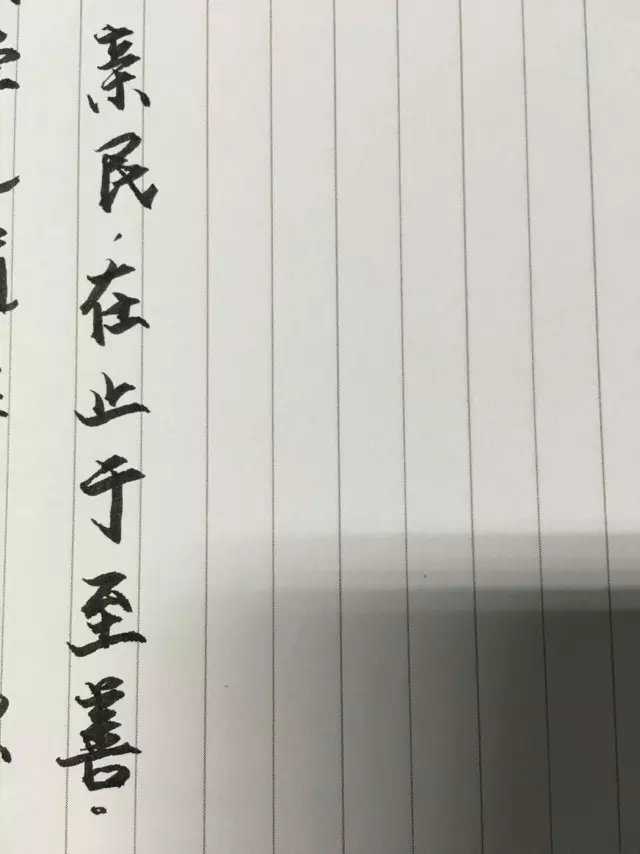 亲民，在止于至善。